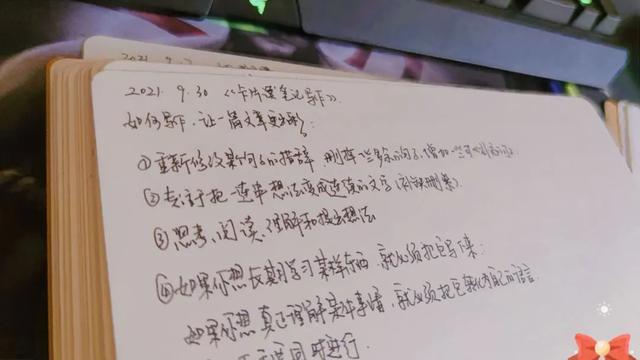 2021. 9. 30 《卡片笔记写作》.
如何写作,让一篇文章更出彩:
①重新修改某句子的措辞 删掉一些多余的句子,增加一些
②专注于把一连串想法变成连续的文字(补缺删繁).
③思考、阅读、理解和提出想法
④如果你想长期学习某样东西,就必须把它写下来;
如果你想真正理解某件事情,就必须把它转化为自己的语言.
同时进行.